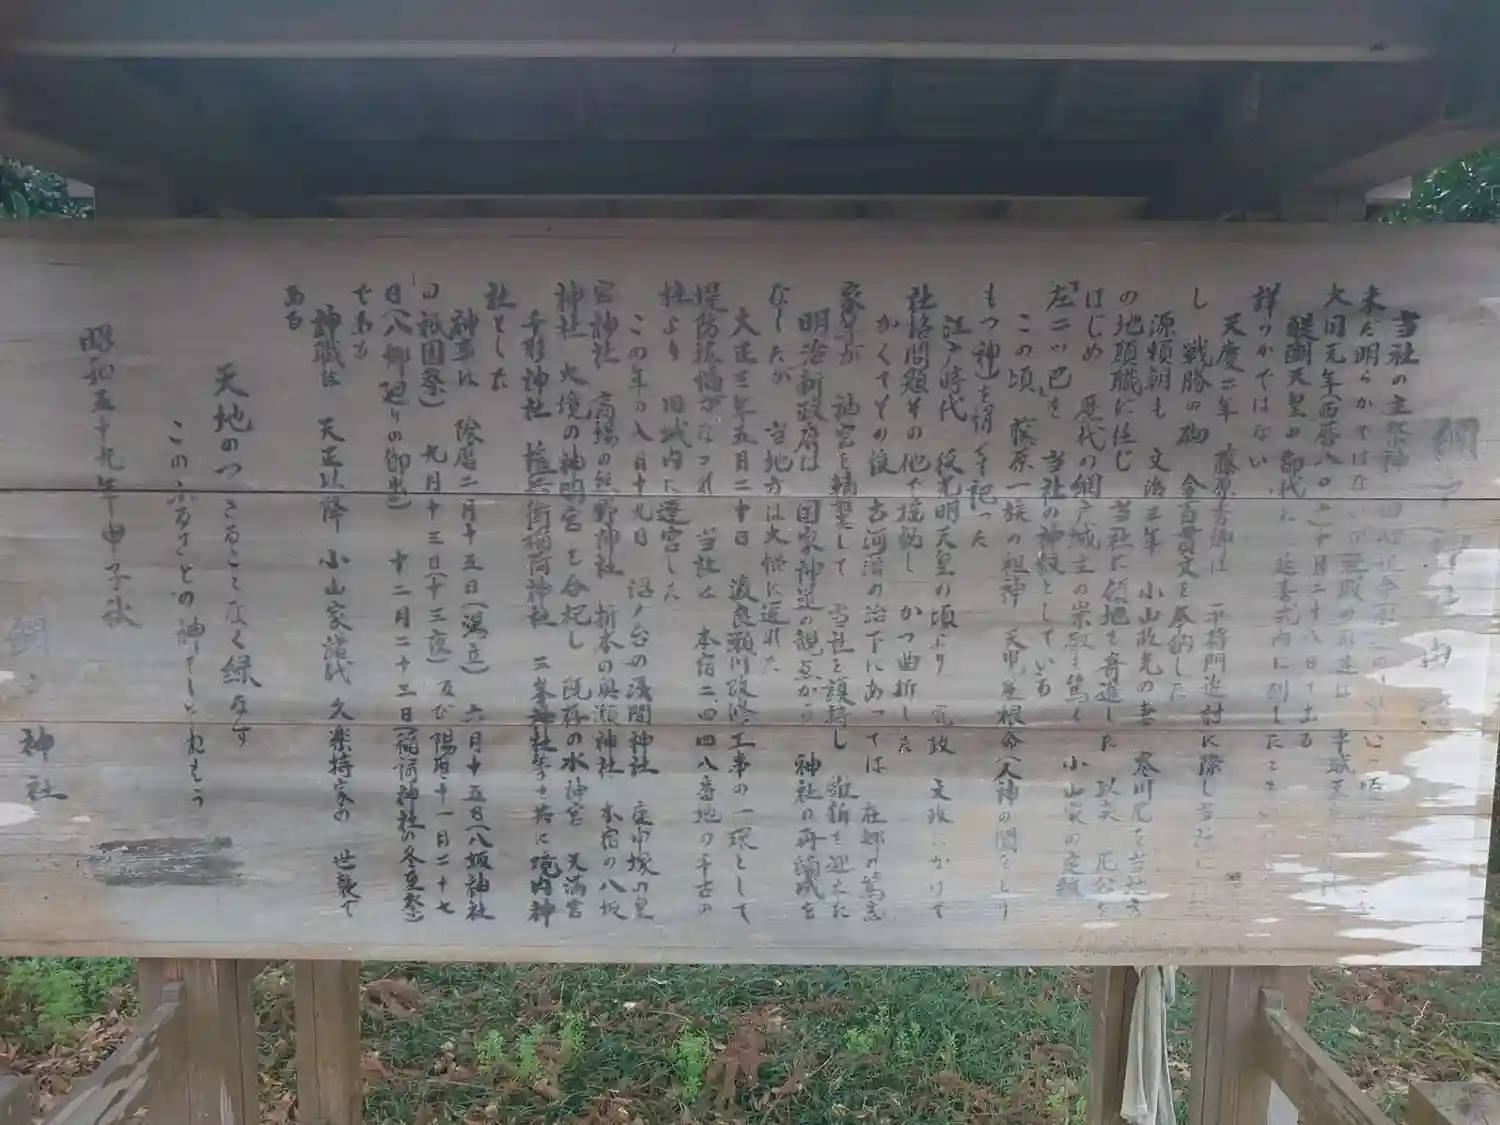 網戸神社
当社の主祭神 田心姫命
未だ明らかではないが 社殿の再建は 平城天皇
大同元年(西暦八〇六)十月二十八日と出る
醍醐天皇の御代に 延喜式内に列したこと
詳らかではない
天慶二年 藤原秀郷は 平将門追討に際し当社に
し 戦勝の砌 金百貫文を奉納した
源頼朝も 文治三年 小山政光の妻 寒川尼を当地方
の地頭職に任じ 当社に領地を寄進した 以来 尼公を
はじめ 歴代の網戸城主の崇敬も篤く 小山家の定紋
「左二ッ巴」を 当社の神紋としている
この頃 藤原一族の祖神 天児屋根命(人神の間をとり
もつ神)を併せ祀った
江戸時代 後光明天皇の頃より 寛政 文政にかけて
社格問題その他で揺動し かつ曲折した
かくてその後 古河藩の治下にあっては 在郷の篤志
家等が 神宮を補翼して 当社を護持し 維新を迎えた
明治新政府は 国家神道の観点から 神社の再編成を
なしたが 当地方は大幅に遅れた
大正三年五月二十日 渡良瀬川改修工事の一環として
堤防拡幅がなされ 当社は 本宿二、四四八番地の千古の
杜より 旧城内に遷宮した
この年の八月十九日 沼ノ台の浅間神社 庚申塚の星
宮神社 高揚の熊野神社 折本の奥瀬神社 本宿の八坂
神社 大境の神明宮を合祀し 既存の水神宮 天満宮
千形神社 抵兵衛稲荷神社 三峯神社等を共に境内神
社とした
神事は 陰暦二月十五日(湯立) 六月十五日(八坂神社
の祇園祭) 九月十三日(十三夜)及び陽暦十一月二十七
日(八郷廻りの御出) 十二月二十三日(稲荷神社の冬至祭)
である
神職は 天正以降 小山家譜代 久楽持家の 世襲で
ある
天地のつきることなく緑なす
このふるさとの神そしとわなもう
昭和五十九年甲子秋
網戸神社